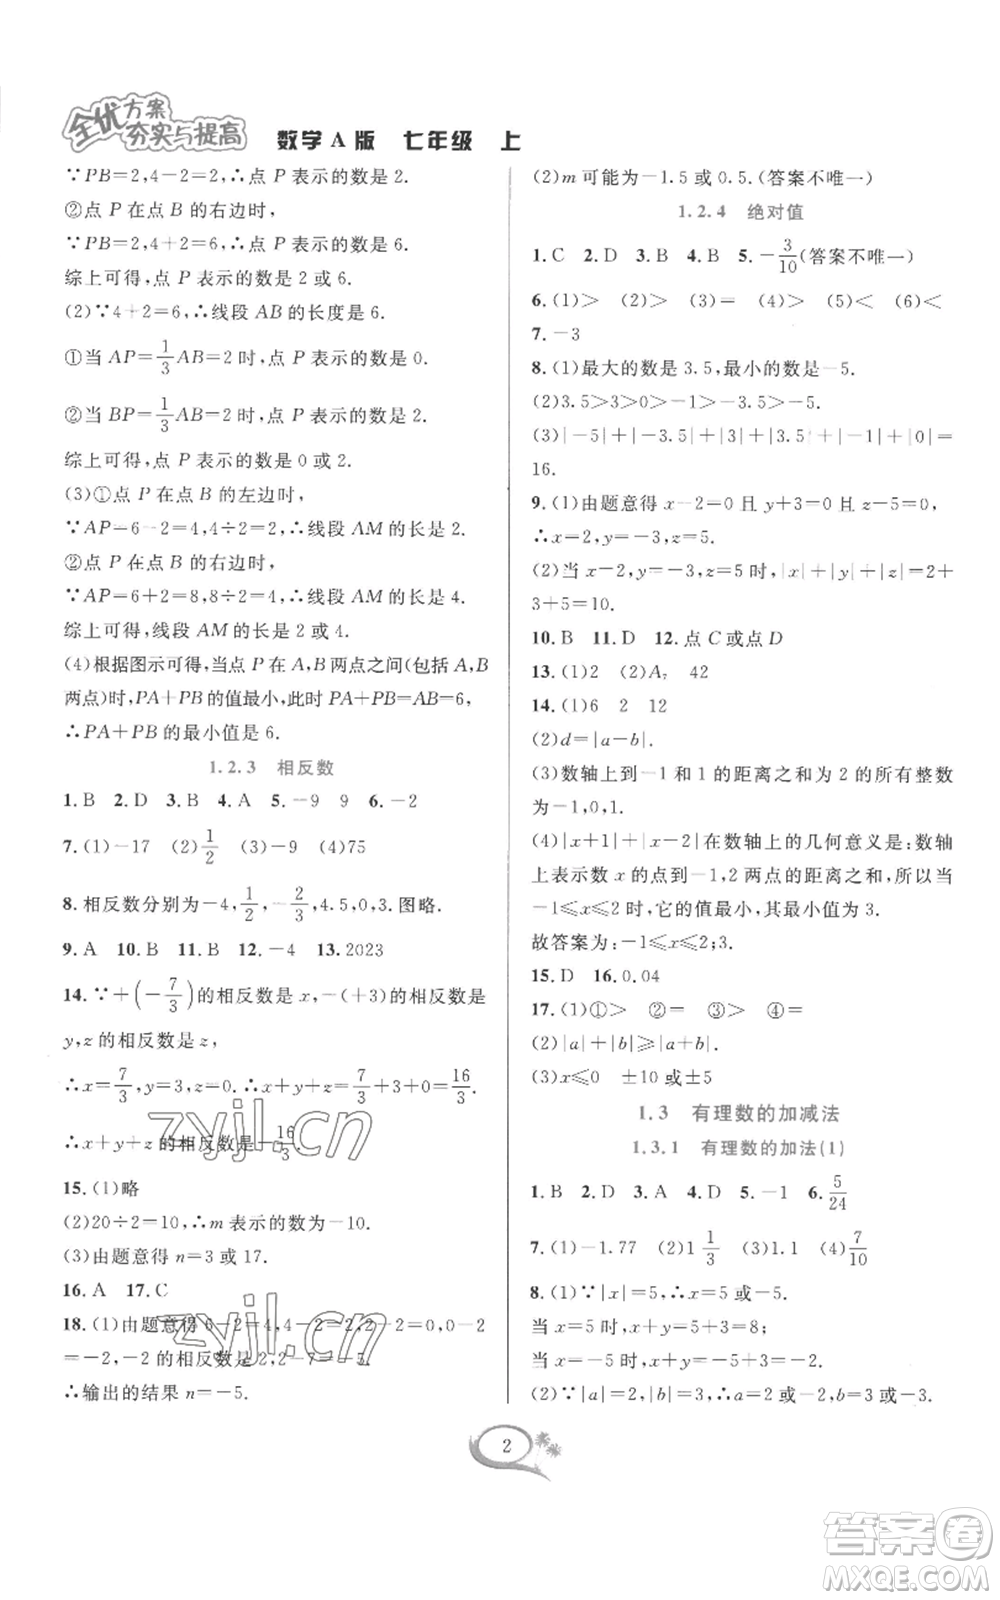 全优方案
夯实与提高
数学A版 七年级 上
∵PB=2,4-2=2,∴点 P 表示的数是 2.
②点 P 在点 B 的右边时,
∵PB=2,4+2=6,∴点 P 表示的数是 6.
综上可得,点 P 表示的数是 2 或 6.
(2)∵4+2=6,∴线段 AB 的长度是 6.
①当 AP=1/3AB=2 时,点 P 表示的数是 0.
②当 BP=1/3AB=2 时,点 P 表示的数是 2.
综上可得,点 P 表示的数是 0 或 2.
(3)①点 P 在点 B 的左边时,
∵AP=6-2=4,4÷2=2,∴线段 AM 的长是 2.
②点 P 在点 B 的右边时,
∵AP=6+2=8,8÷2=4,∴线段 AM 的长是 4.
综上可得,线段 AM 的长是 2 或 4.
(4)根据图示可得,当点 P 在 A,B 两点之间(包括 A,B
两点)时,PA+PB 的值最小,此时 PA+PB=AB=6,
∴PA+PB 的最小值是 6.
1.2.3 相反数
1.B 2.D 3.B 4.A 5.-9 9 6.-2
7.(1)-17 (2)1/2 (3)-9 (4)75
8.相反数分别为-4,1/2,-2/3,4.5,0,3.图略.
9.A 10.B 11.B 12.-4 13.2023
14.∵+(-7/3)的相反数是 x,-(+3)的相反数是
y,z 的相反数是 z,
∴x=7/3,y=3,z=0.∴x+y+z=7/3+3+0=16/3.
∴x+y+z 的相反数是-16/3.
15.(1)略
(2)20÷2=10,∴m 表示的数为-10.
(3)由题意得 n=3 或 17.
16.A 17.C
18.(1)由题意得 6-2=4,4-2=2,2-2=0,0-2
=-2,-2 的相反数是 2,2-7=-5.
∴输出的结果 n=-5.
(2)m 可能为-1.5 或 0.5.(答案不唯一)
1.2.4 绝对值
1.C 2.D 3.B 4.B 5.-3/10(答案不唯一)
6.(1)> (2)> (3)= (4)> (5)< (6)<
7.-3
8.(1)最大的数是 3.5,最小的数是-5.
(2)3.5>3>0>-1>-3.5>-5.
(3)|-5|+|-3.5|+|3.5|+|3|+|-1|+|0|=
16.
9.(1)由题意得 x-2=0 且 y+3=0 且 z-5=0,
∴x=2,y=-3,z=5.
(2)当 x=2,y=-3,z=5 时,|x|+|y|+|z|=2+
3+5=10.
10.B 11.D 12.点 C 或点 D
13.(1)2 (2)A7 42
14.(1)6 2 12
(2)d=|a-b|.
(3)数轴上到-1 和 1 的距离之和为 2 的所有整数
为-1,0,1.
(4)|x+1|+|x-2|在数轴上的几何意义是:数轴
上表示数 x 的点到-1,2 两点的距离之和,所以当
-1≤x≤2 时,它的值最小,其最小值为 3.
故答案为:-1≤x≤2;3.
15.D 16.0.04
17.(1)①> ②= ③> ④=
(2)|a|+|b|≥|a+b|.
(3)x≤0 ±10 或±5
1.3 有理数的加减法
1.3.1 有理数的加法(1)
1.B 2.D 3.A 4.D 5.-1 6.5/24
7.(1)-1.77 (2)1 1/3 (3)1.1 (4)7/10
8.(1)∵|x|=5,∴x=5 或-5.
当 x=5 时,x+y=5+3=8;
当 x=-5 时,x+y=-5+3=-2.
(2)∵|a|=2,|b|=3,∴a=2 或-2,b=3 或-3.
2
zyjl.cn
zyjl.cn
答案卷
MXQE.COM